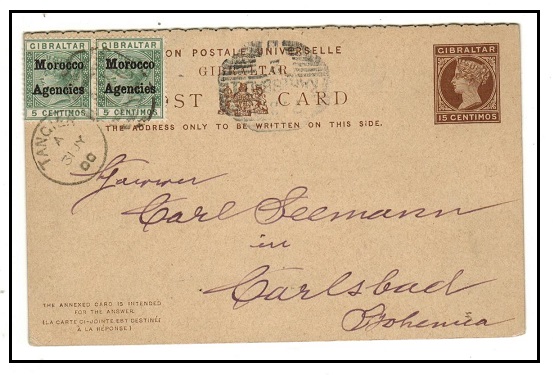 GIBRALTAR GIBRALTAR
Morocco Morocco
Agencies Agencies
5 CENTIMOS 5 CENTIMOS
ON POSTALE UNIVERSELLE
GIBRALTAR
OST CARD
THE ADDRESS ONLY TO BE WRITTEN ON THIS SIDE.
GIBRALTAR
15 CENTIMOS
TANGIE
A
00
Carl Seemann
in
Carlsbad
Bohemia
THE ANNEXED CARD IS INTENDED
FOR THE ANSWER.
(LA CARTE CI-JOINTE EST DESTINÉE
À LA RÉPONSE)